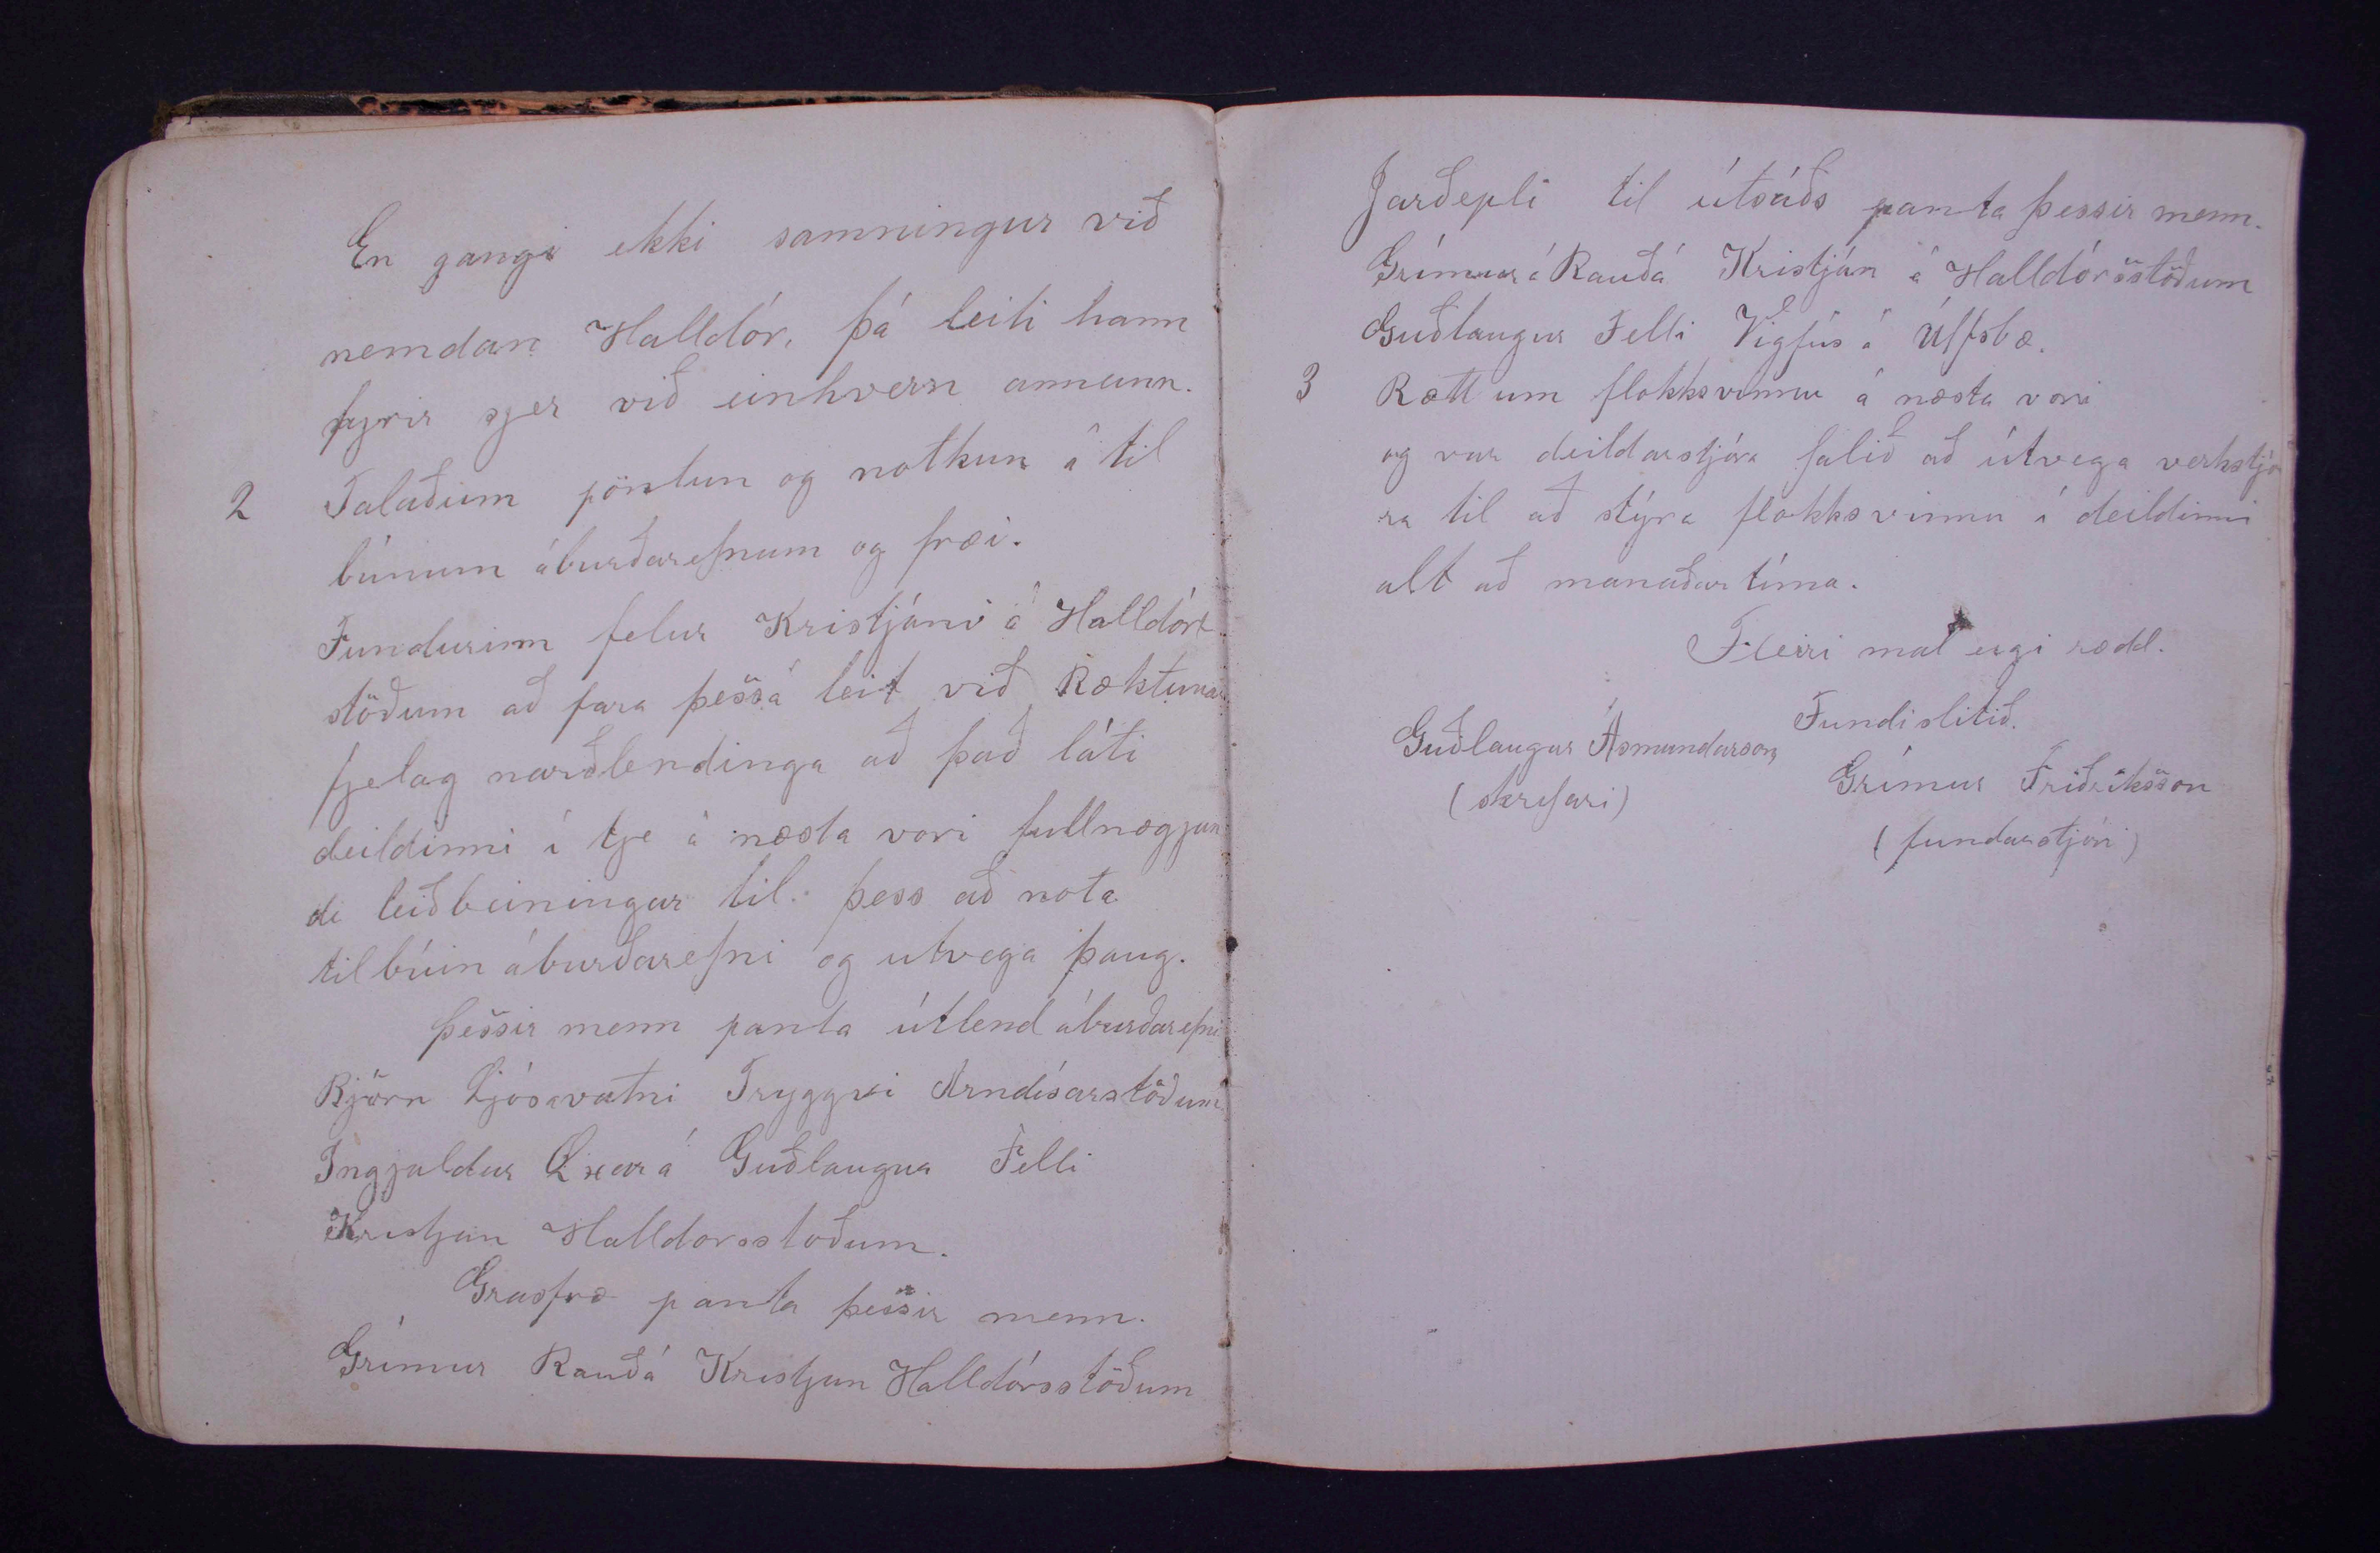 En gangi ekki samningur við
nemdan Halldór, þá leiti hann
fyrir sjer við einhvern annann.
2 Talað um pöntun og notkun á til
búnum áburðarefnum og fræi.
Fundurinn felur Kristjáni á Halldórs
stöðum að fara þess á leit við Ræktunar
fjelag norðlendinga að það láti
deildinni í tje á næsta vori fullnægjan
di leiðbeiningar til þess að nota
tilbúin áburðarefni og utvega þaug.
Þessir menn panta útlend áburðarefni
Björn Ljósavatni Tryggvi Arndísarstöðum
Ingjaldur Öxará Guðlaugur Felli
Kristjan Halldorsstoðum.
Grasfræ panta þessir menn.
Grímur Rauðá Kristjan Halldórsstöðum
Jarðepli til útsáðs panta þessir menn.
Grímur á Rauðá Kristján á Halldórsstöðum
Guðlaugur Felli Vigfús á Úlfsbæ.
3 Rætt um flokksvinnu á næsta vori
og var deildarstjóra falið að útvega verkstjó
ra til að stýra flokksvinnu í deildinni
alt að manaðartíma.
Fleiri mal eigi rædd.
Fundi slitið.
Guðlaugur Ásmundarson
(skrifari)
Grímur Friðriksson
(fundarstjóri)